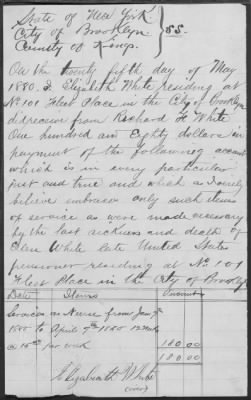 State of New York
City of Brooklyn } SS.
County of Kings.
On the twenty fifth day of May
1880. I Elizabeth White residing at
No 101 Fleet Place in the City of Brooklyn
did receive from Richard H White
One hundred and Eighty dollars in
payment of the following account
which is in every particular
just and true and which as I verily
believe embraces only such items
of service as were made necessary
by the last sickness and death of
Ellen White late United States
pensioner residing at No 101
Fleet Place in the City of Brooklyn
Date Items Amount
Services as Nurse from Jany
1880 to April 7th 1880 12 Weeks
@ 15.00 per week 180.00
180.00
Elizabeth White